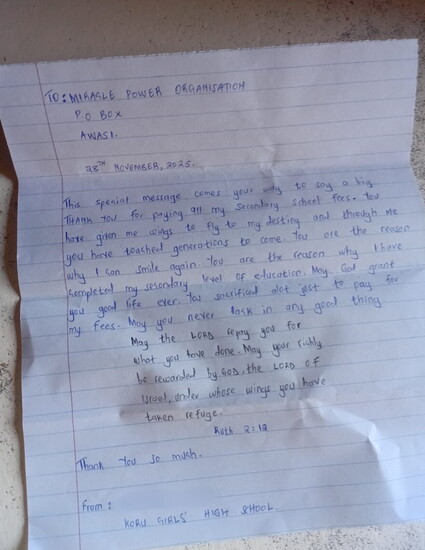 TO: MIRACLE POWER ORGANISATION
P.O BOX
AWASI.
28TH NOVEMBER, 2025.
This special message comes your way to say a big
THANK YOU for paying all my secondary school fees. You
have given me wings to fly to my destiny and through me
you have touched generations to come. You are the reason
why I can smile again. You are the reason why I have
completed my secondary level of education. May God grant
you good life ever. You sacrificed alot just to pay for
my fees. May you never lack in any good thing.
May the LORD repay you for
what you have done. May your richly
be rewarded by GOD, the LORD OF
Israel, under whose wings you have
taken refuge.
Ruth 2:12
Thank You so much.
From:
KORU GIRLS' HIGH SCHOOL.